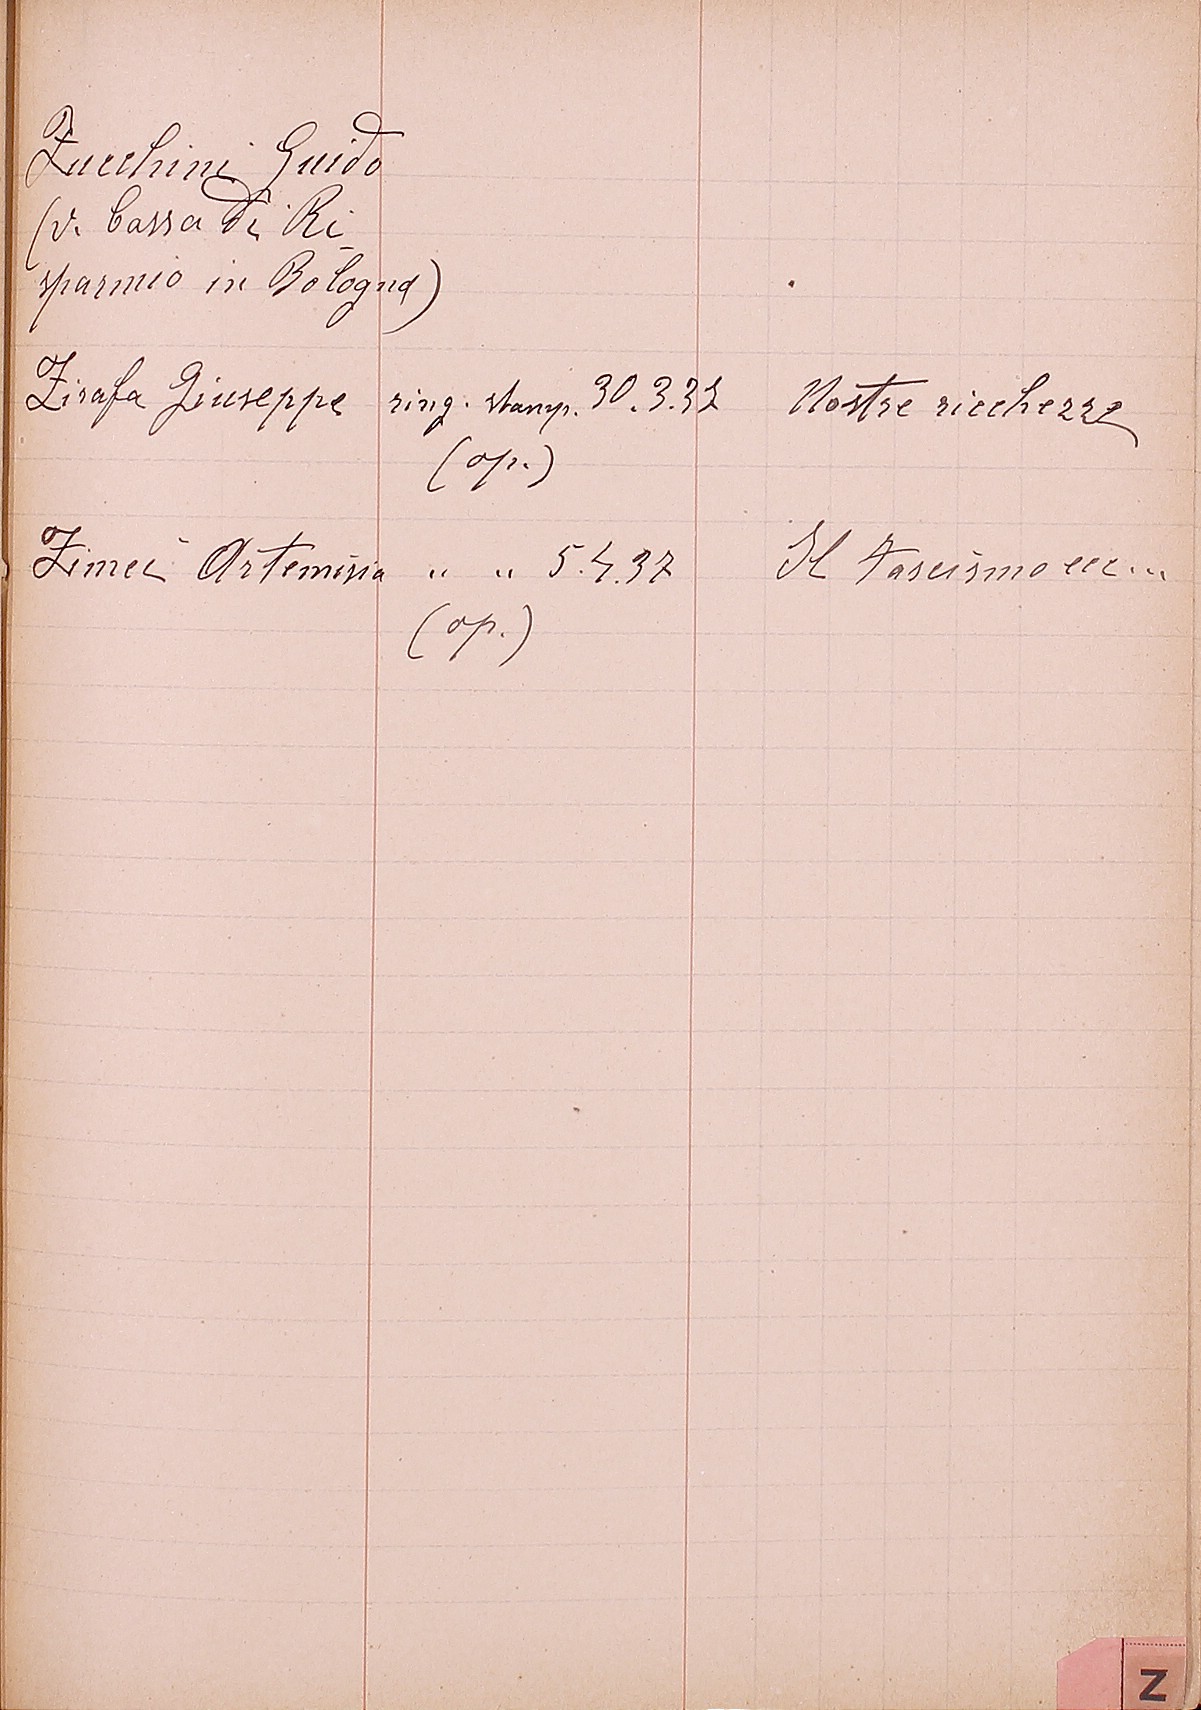 Zucchini Guido
(v. Cassa di Ri
sparmio in Bologna)
Zirafa Giuseppe ring. stamp. 30.3.37 Nostre ricchezze
(op.)
Zimei Artemisia " " 5.4.37 Il Fascismo ecc...
(op.)
Z